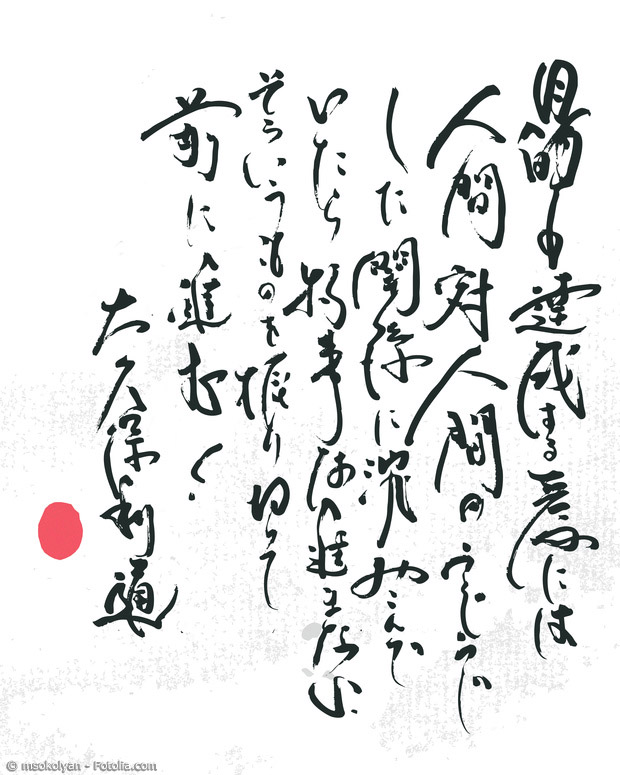 目的を達成する為には
人間対人間のうじうじ
した関係に沈みこんで
いたら物事は進まない
そういうものを振り切って
前に進む
大久保利通
© msokolyan - Fotolia.com